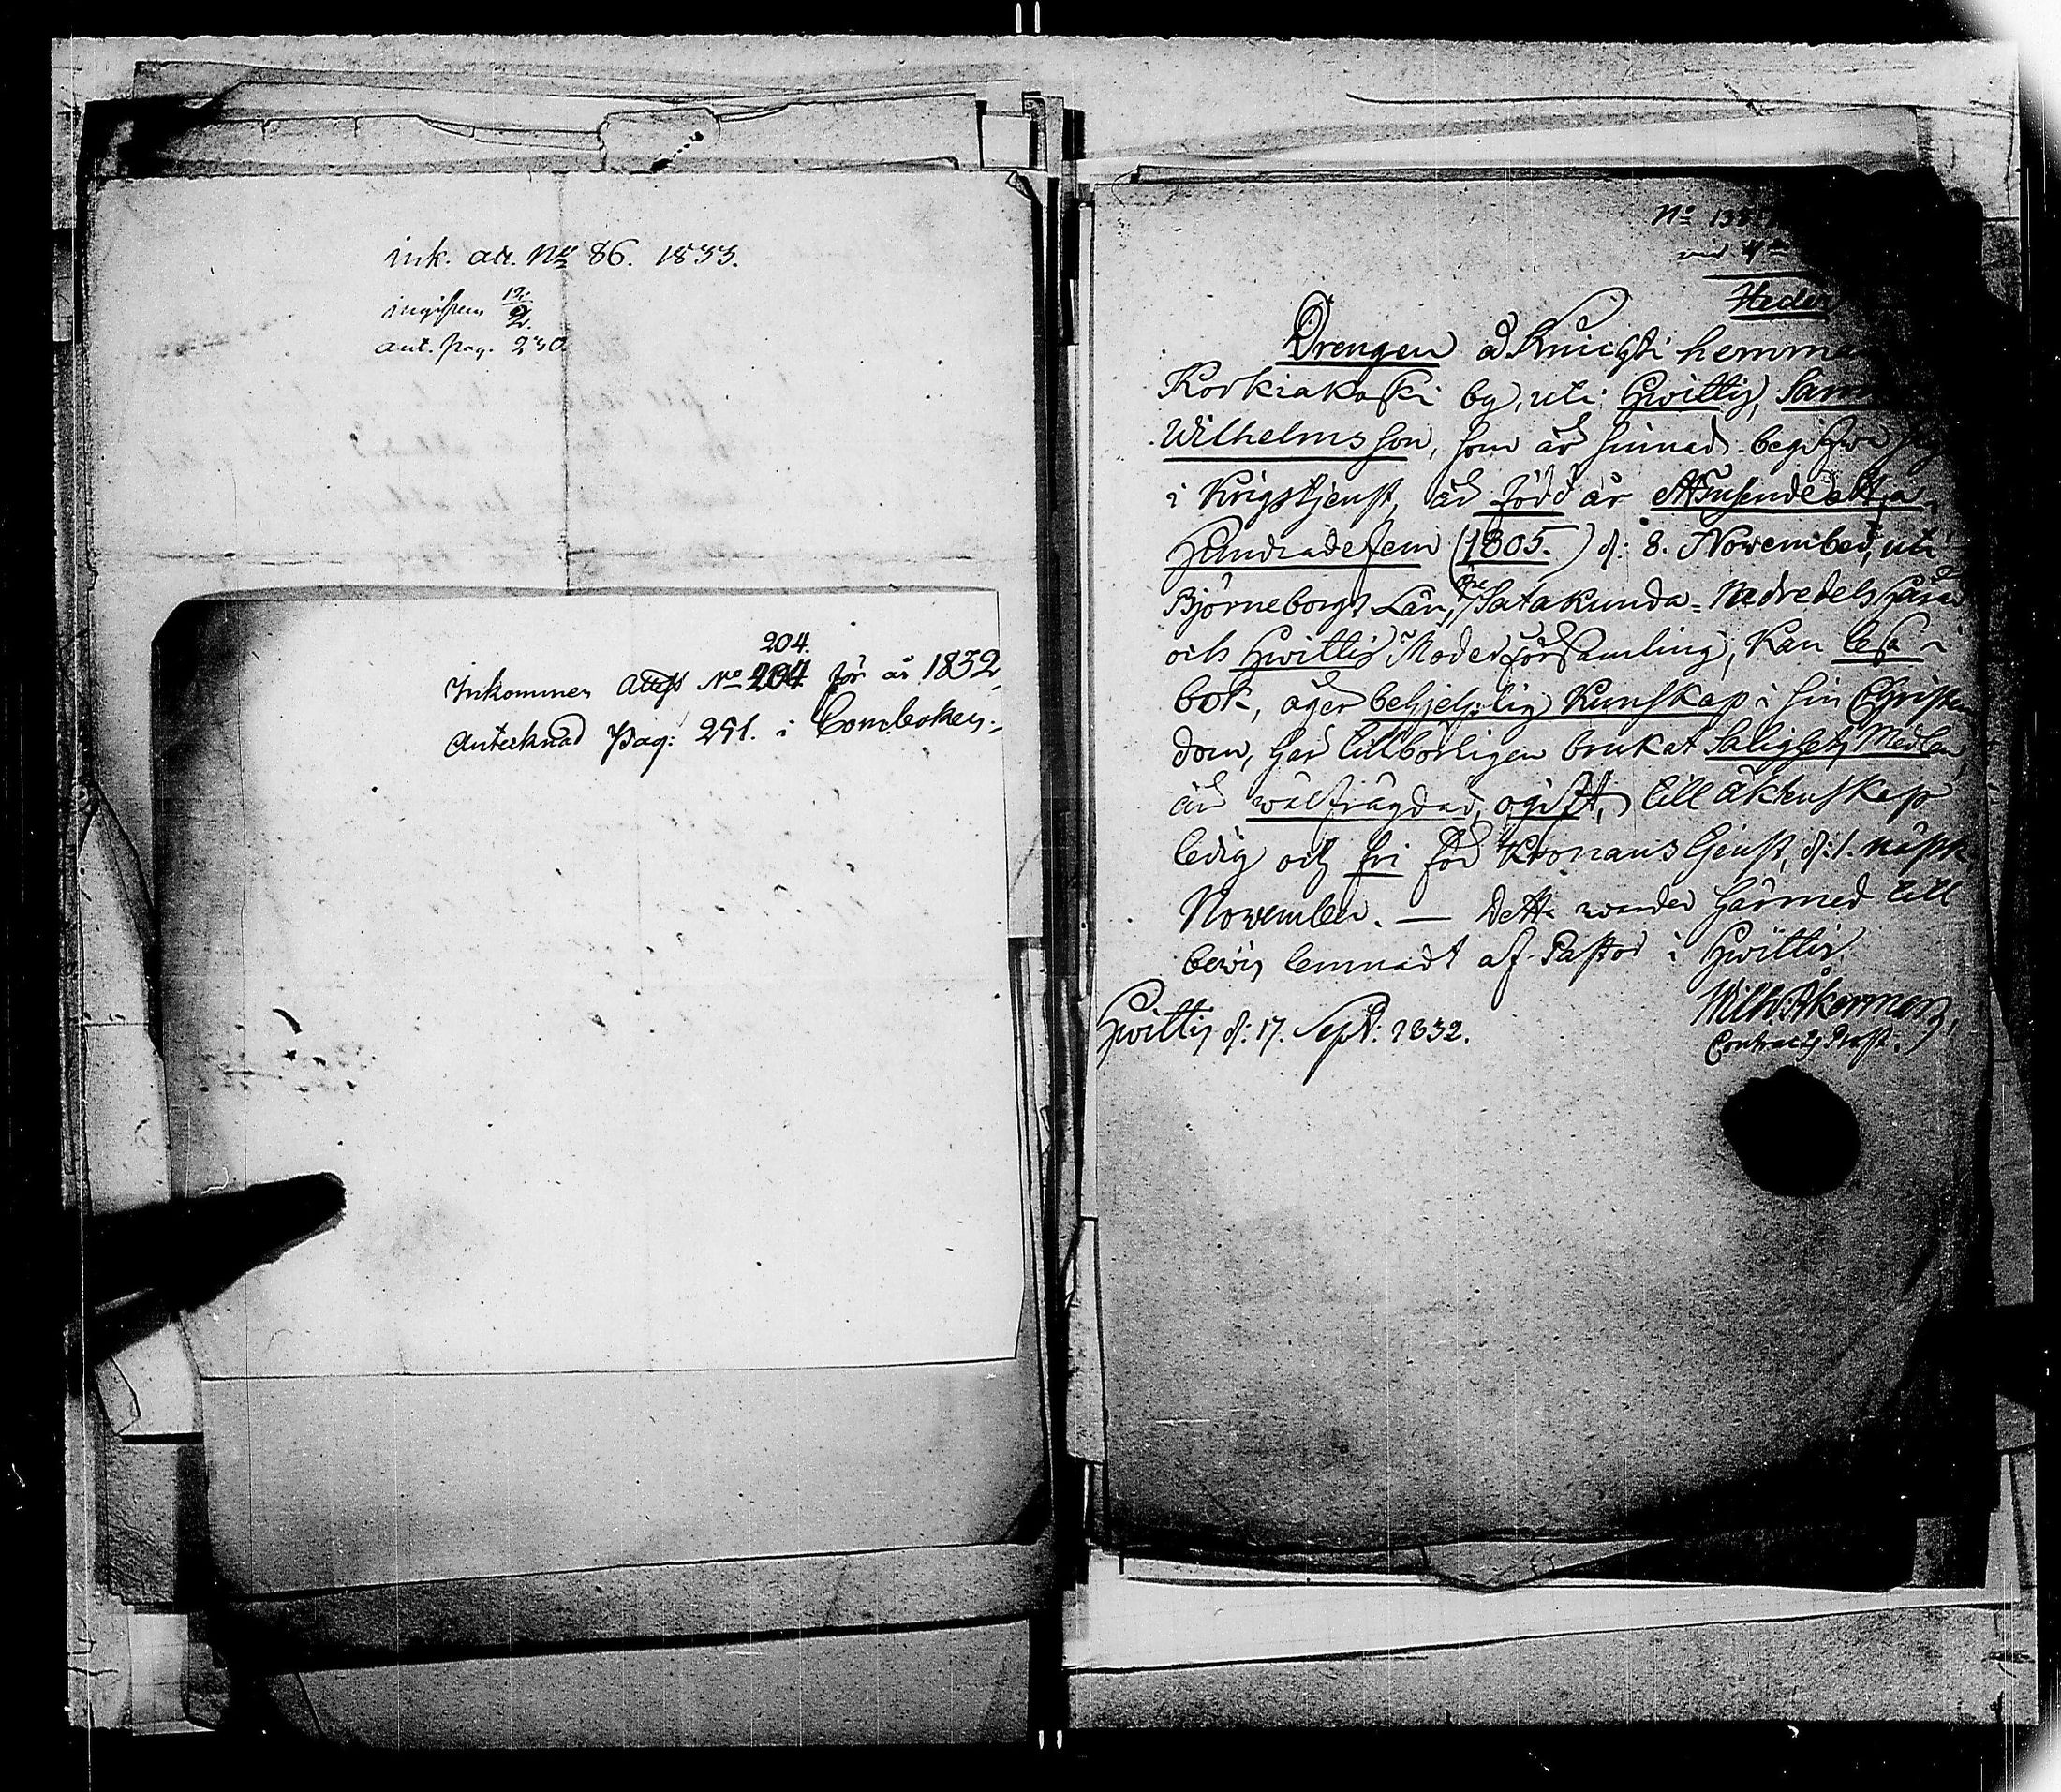 ink. att. No 86. 1833.
ant. pag. 230
204.
Inkommen Attest No 204 för år 1832,
Anteknad Pag: 291. i Com.boken.
No 138
Heder
Drengen å Knichti hemma
Korkiakoski by, uti Hwittis, Sam
Wilhelmsson, som är sinnad begifwa sig
i Krigstjenst, är född år ettusendeåtta
Hundradefem (1805.) d: 8. November, uti
Björneborgs Län, Satakunda-Nedredels härad
och Hwittis Moderförsamling, kan läsa i
bok, äger behjelplig kunskap i sin Christen
dom, har tillbörligen brukat Salighets Medlen,
är wälfrägdad, ogift, till äktenskap
ledig och fri för Kronans tjenst, d: 1. nästk.
November. — Detta warder härmed till
bewis lemnadt af Pastor i Hwittis.
Hwittis d: 17. Sept: 1832.
Wilh: Åkerman,
Contracts Prost.